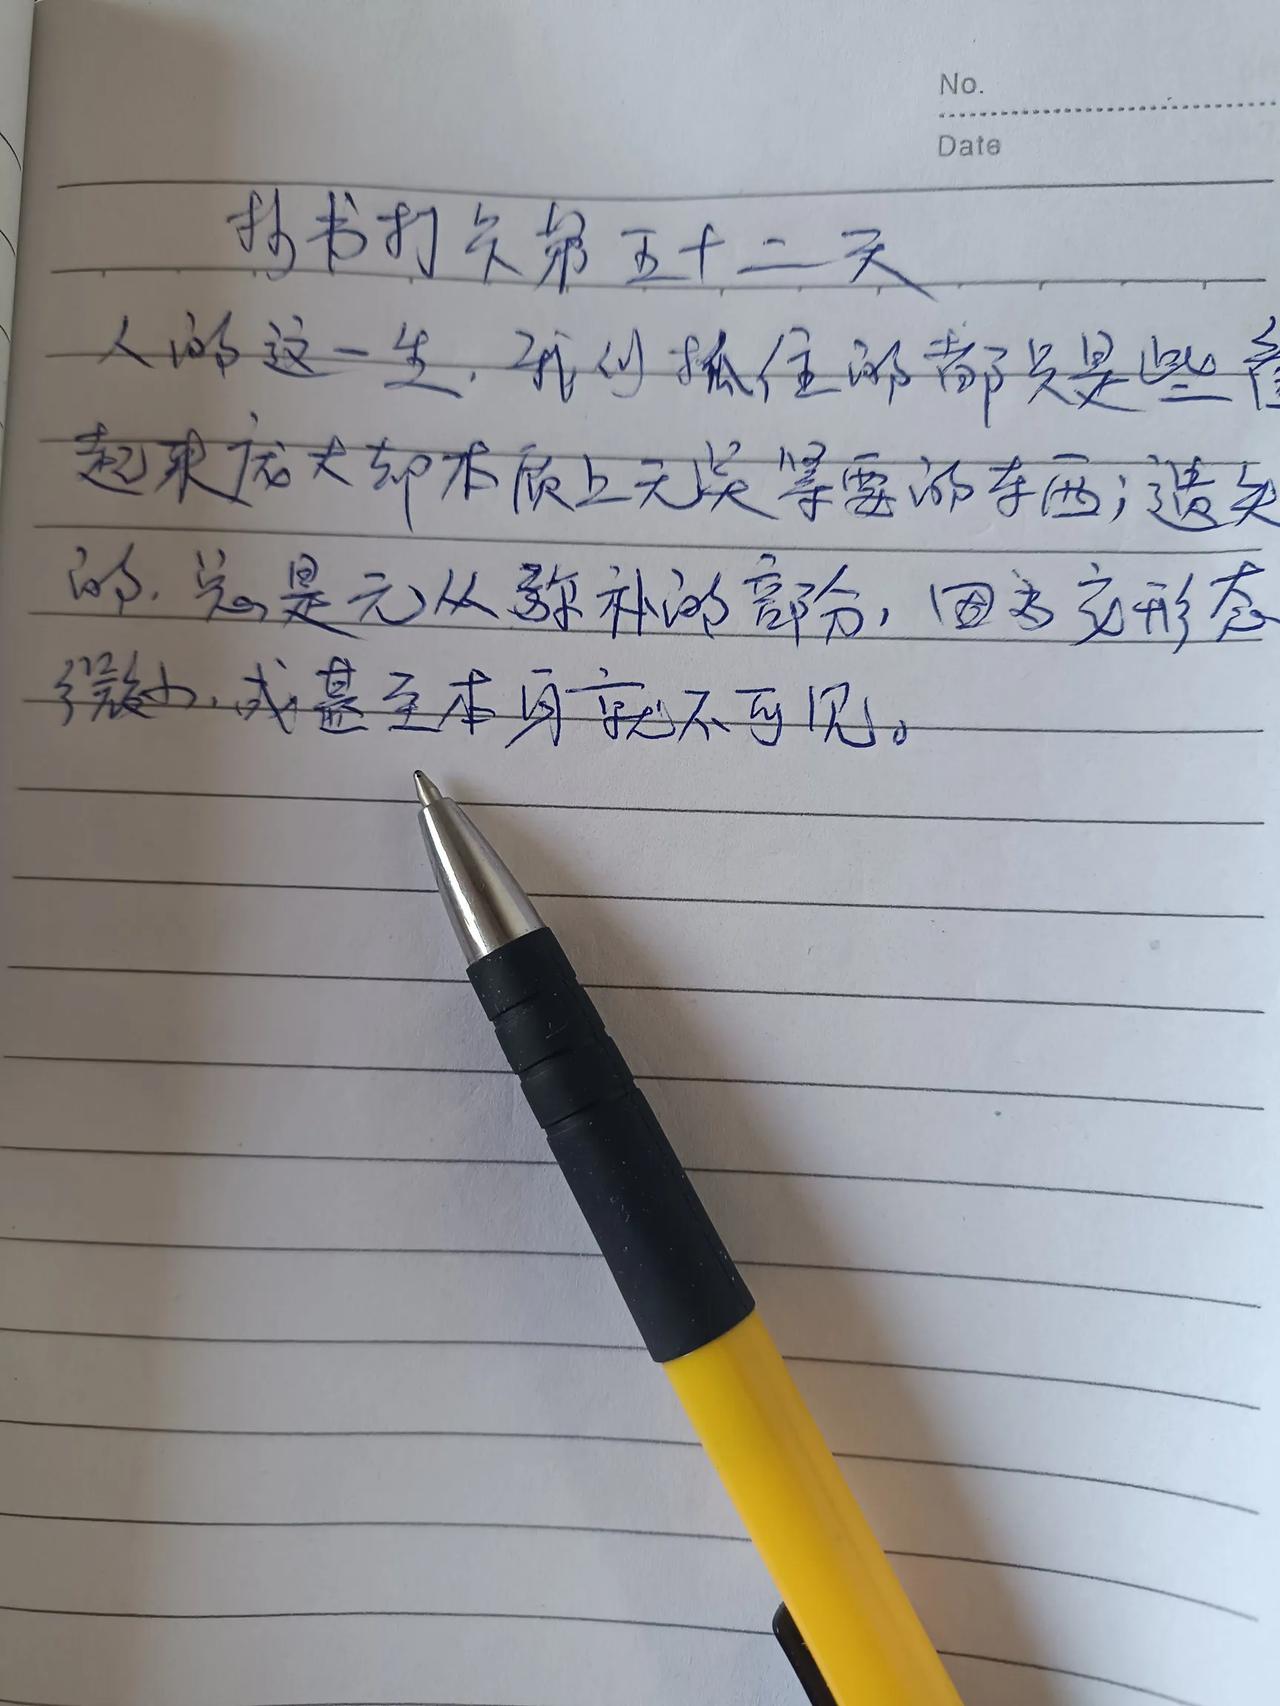 No.
Date
抄书打卡第五十二天
人的这一生，我们抓住的都只是些看
起来庞大却本质上无关紧要的东西；遗失
的，总是无从弥补的部分，因为它形态
微小，或甚至本身就不可见。